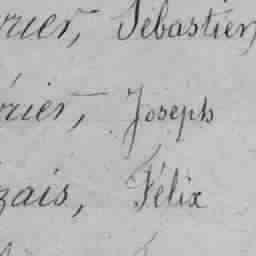 rier, Sébastien
rier, Joseph
zais, Félix